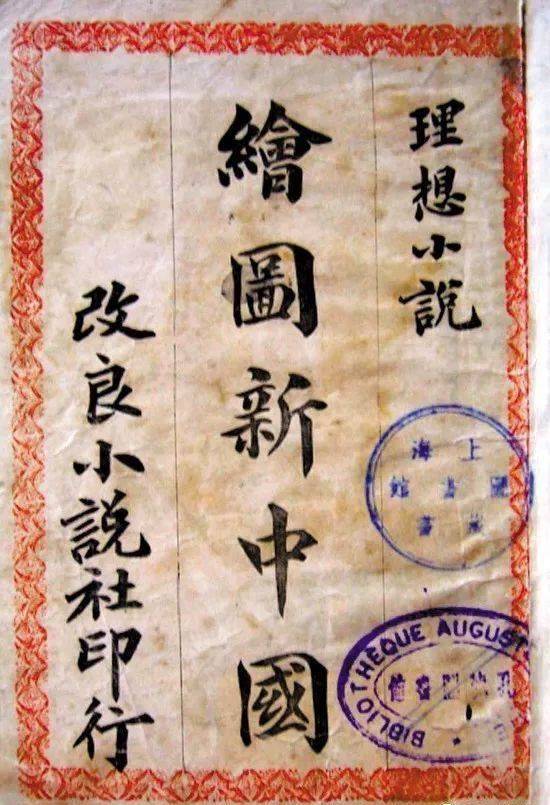 理想小説
繪圖新中國
改良小說社印行
上海
圖書館
藏書
BIBLIOTHEQUE AUGUST